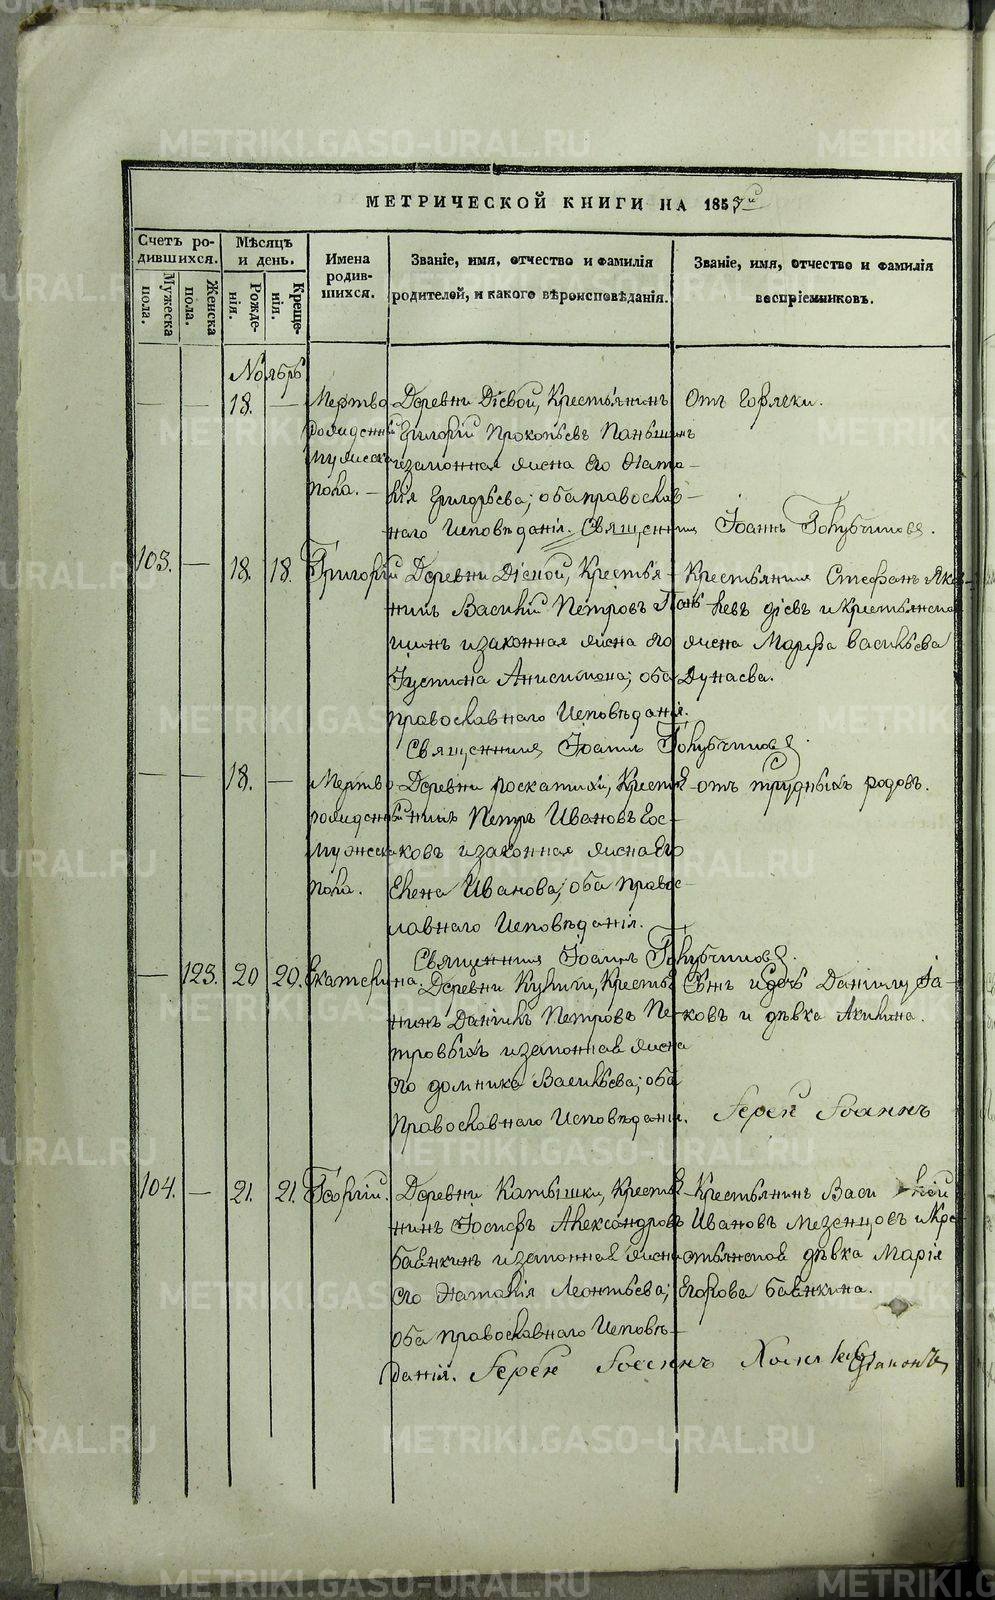 МЕТРИЧЕСКОЙ КНИГИ НА 1857
Счетъ родившихся.
Мужеска пола.
Женска пола.
Мѣсяцъ и день.
Рожденія.
Крещенія.
Имена родившихся.
Званіе, имя, отчество и фамилія
родителей, и какого вѣроисповѣданія.
Званіе, имя, отчество и фамилія
воспріемниковъ.
Ноябрь
— — 18. —
Мертво
рожденный
мужеска
пола. —
Деревни Дїевой, Крестьянинъ
Григорій Прокопьевъ Паньшинъ
и законная жена его Ната-
лія Григорьева; оба православ-
наго Исповѣданія. Священникъ Іоаннъ Голубчиковъ.
Отъ горячки.
103. — 18. 18. Григорій
Деревни Дїевой, Крестья-
нинъ Василій Петровъ Пань-
шинъ и законная жена его
Іустина Анисимова; оба
православнаго Исповѣданія.
Священникъ Іоаннъ Голубчиковъ.
Крестьянинъ Стефанъ Яков-
левъ Дїевъ и крестьянская
жена Марфа Васильева
Дунаева.
— — 18. —
Мертво
рожденный
мужеска
пола.
Деревни Поскатихи, Крестья-
нинъ Петръ Ивановъ
и законная жена Его
Елена Иванова; оба Правос-
лавнаго Исповѣданія.
Священникъ Іоаннъ Голубчиковъ.
отъ трудныхъ родовъ.
— 123. 20 20. Екатерина.
Деревни Кулиги, Крестья-
нинъ Даніилъ Петровъ Пе-
тровыхъ и законная жена
его Домника Васильева; оба
Православнаго Исповѣданія.
ковъ и дѣвка Акилина.
Іерей Іоаннъ
104. — 21. 21. Георгій.
Деревни Катышки, Крестья-
нинъ Іосифъ Александровъ
Бабкинъ и законная жена
его Наталія Леонтьева;
оба православнаго Исповѣ-
данія. Іерей Іоаннъ
Крестьянинъ Василій
Ивановъ Мезенцовъ и Кре-
стьянская дѣвка Марія
Егорова Бабкина.